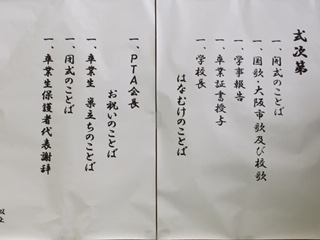 式次第
一、開式のことば
一、国歌・大阪市歌及び校歌
一、学事報告
一、卒業証書授与
一、学校長
はなむけのことば
一、PTA会長
お祝いのことば
一、卒業生 巣立ちのことば
一、閉式のことば
一、卒業生保護者代表謝辞